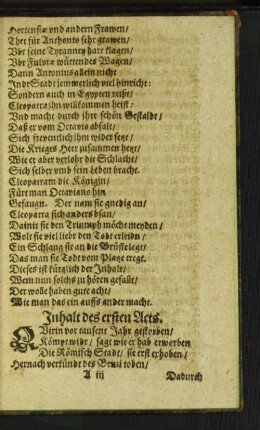 Hortensiæ vnd andern Frawen/
Thet für Anthonio sehr grawen/
Vbr seine Tyranney hart klagen/
Vbr Fulviæ wüttendes Wagen/
Dann Antonius allein nicht
Indr Stadt jemmerlich viel hinricht:
Sondern auch in Egypten reist/
Cleopatra ihn willkommen heist:
Vnd macht durch ihre schön Gestaldt/
Daß er vom Octavio abfalt/
Sich freventlich ihm wider setzt/
Die Krieges Heer zusammen hetzt/
Wie er aber verlohr die Schlacht/
Sich selber vmb sein Leben bracht.
Cleopatram die Königin/
Fürt man Octaviano hin
Gefangn. Der nam sie gnedig an/
Cleopatra sich anders bsan/
Damit sie den Triumph möcht meyden/
Wolt sie viel liebr den Todt erleidn/
Ein Schlang sie an die Brüste legt/
Das man sie Todt vom Platze tregt.
Dieses ist kürtzlich der Inhalt/
Wem nun solchs zu hören gefallt/
Der wolle haben gute acht/
Wie man das ein auffs ander macht.
Inhalt des ersten Acts.
Qvirin vor tausent Jahr gestorben/
Kömpt widr/ sagt wie er hab erworben
Die Römisch Stadt/ sie erst erhoben/
Hernach verkündt des Bruti toben/
A iij Dadurch